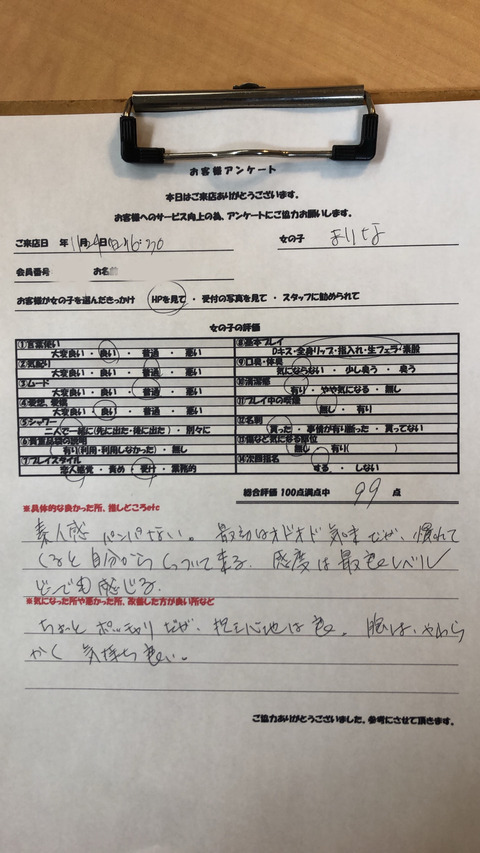 お客様アンケート
本日はご来店ありがとうございます。
お客様へのサービス向上の為、アンケートにご協力お願いします。
ご来店日 年 11月24日 16:30 女の子 まりな
会員番号 お名前
お客様が女の子を選んだきっかけ HPを見て ・ 受付の写真を見て ・ スタッフに勧められて
女の子の評価
①言葉使い
大変良い ・ 良い ・ 普通 ・ 悪い
②気配り
大変良い ・ 良い ・ 普通 ・ 悪い
③ムード
大変良い ・ 良い ・ 普通 ・ 悪い
④愛想、愛嬌
大変良い ・ 良い ・ 普通 ・ 悪い
⑤シャワー
二人で一緒に(先に出た・後に出た) ・ 別々に
⑥貴重品袋の説明
有り(利用・利用しなかった) ・ 無し
⑦プレイスタイル
恋人感覚 ・ 責め ・ 受け ・ 業務的
⑧基本プレイ
Dキス・全身リップ・指入れ・生フェラ・素股
⑨口臭・体臭
気にならない ・ 少し臭う ・ 臭う
⑩清潔感
有り ・ やや気になる ・ 無し
⑪プレイ中の喫煙
無し ・ 有り
⑫名刺
貰った ・ 事情が有り断った ・ 貰ってない
⑬傷など気になる部位
無し ・ 有り( )
⑭次回指名
する ・ しない
総合評価 100点満点中 99 点
※具体的な良かった所、推しどころetc
素人感 ハンパない。 最初はオドオド気味だが、慣れて
くると自分からくっついて来る。 感度は最高レベル
どこでも感じる。
※気になった所や悪かった所、改善した方が良い所など
ちょっと ポッチャリ だが、抱き心地は良。 肌は、やわら
かく 気持ち良い。
ご協力ありがとうございました。参考にさせて頂きます。